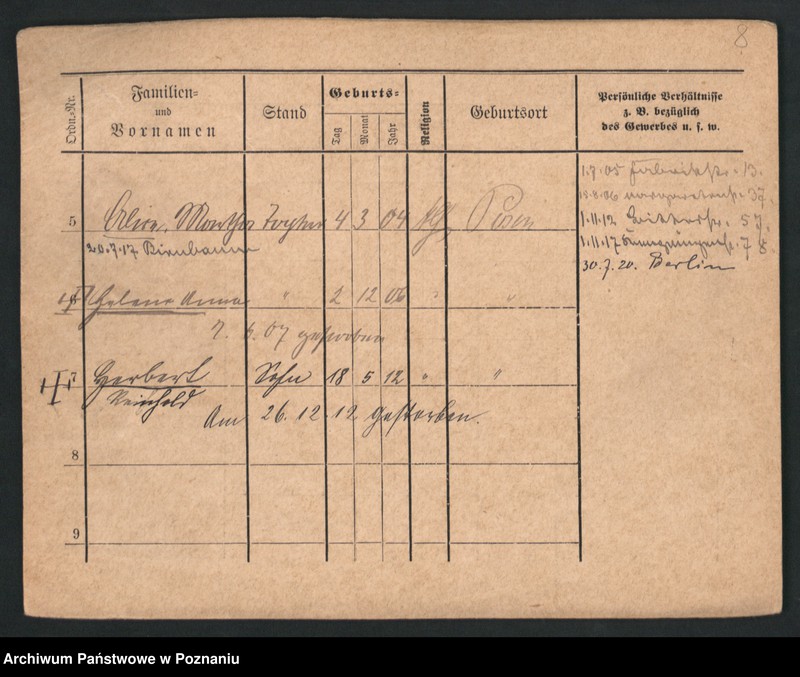 8
Ordn.-Nr.
Familien= und Vornamen
Stand
Geburts=
Tag
Monat
Jahr
Religion
Geburtsort
Persönliche Verhältnisse
z. B. bezüglich
des Gewerbes u. s. w.
1.7.05 13.
18.8.06 37.
5 Alice, Martha Tochter 4 3 04 Posen
1.11.12 Ritterstr. 57.
20.7.17. Birnbaum
1.11.17 78.
30.7.20. Berlin
6 Helene Anna " 2 12 06 " "
7. 6. 07 gestorben
7 Herbert Sohn 18 5 12 " "
Reinhold
Am 26. 12. 12 gestorben.
8
9
Archiwum Państwowe w Poznaniu